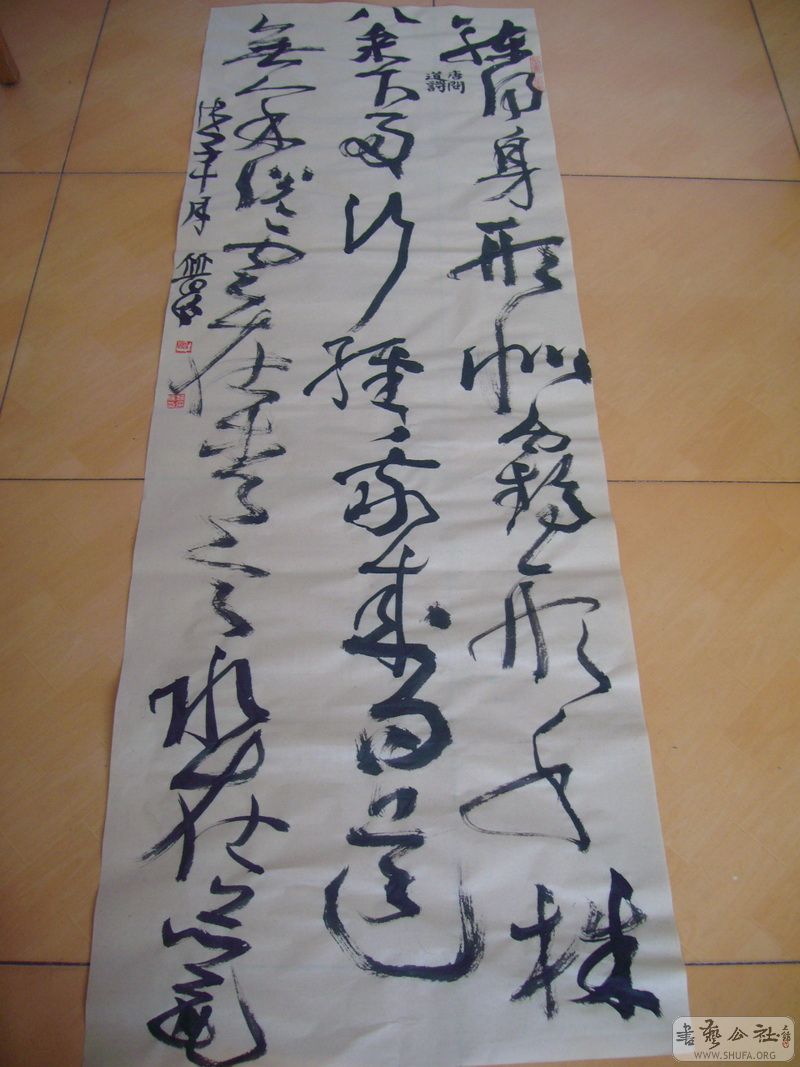 練得身形似鶴形千株
唐問
道詩
松下两經我來问道
無餘說云在青霄水在瓶
戊子十月
書藝公社
WWW.SHUFA.ORG